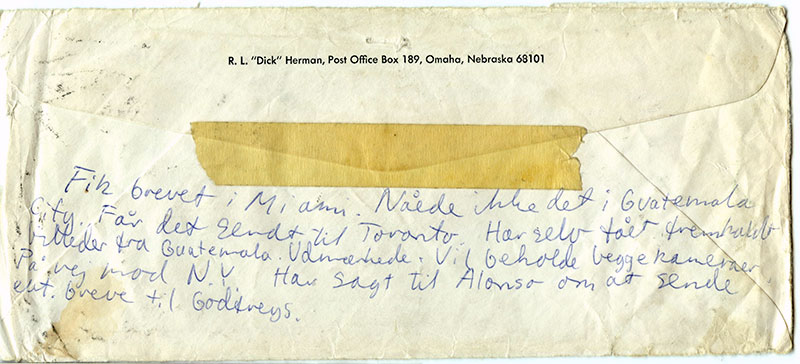 R. L. "Dick" Herman, Post Office Box 189, Omaha, Nebraska 68101
Fik brevet i Miami. Nåede ikke det i Guatemala
City. Får det sendt til Toronto. Har selv fået fremkaldt
billeder fra Guatemala. Udmærkede. Vil beholde begge kameraer.
På vej mod N.Y. Har sagt til Alonso om at sende
evt. breve til Godfreys.